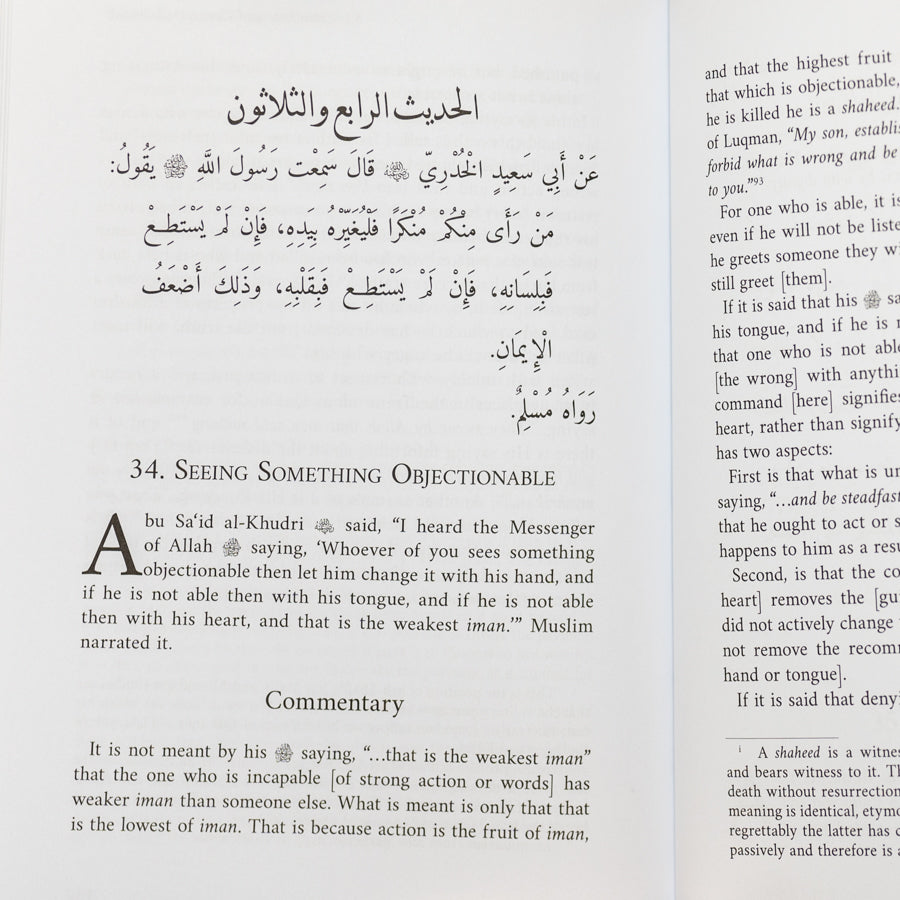 الحديث الرابع والثلاثون
عَنْ أَبِي سَعِيدٍ الْخُدْرِيّ رضي الله عنه قَالَ سَمِعْت رَسُولَ اللَّهِ ﷺ يَقُولُ:
مَنْ رَأَى مِنْكُمْ مُنْكَرًا فَلْيُغَيِّرْهُ بِيَدِهِ، فَإِنْ لَمْ يَسْتَطِعْ
فَبِلِسَانِهِ، فَإِنْ لَمْ يَسْتَطِعْ فَبِقَلْبِهِ، وَذَلِكَ أَضْعَفُ
الْإِيمَانِ.
رَوَاهُ مُسْلِمٌ.
34. Seeing Something Objectionable
Abu Sa‘id al-Khudri said, “I heard the Messenger
of Allah ﷺ saying, ‘Whoever of you sees something
objectionable then let him change it with his hand, and
if he is not able then with his tongue, and if he is not able
then with his heart, and that is the weakest iman.’” Muslim
narrated it.
Commentary
It is not meant by his ﷺ saying, “…that is the weakest iman”
that the one who is incapable [of strong action or words] has
weaker iman than someone else. What is meant is only that that
is the lowest of iman. That is because action is the fruit of iman,
and that the highest fruit
that which is objectionable,
he is killed he is a shaheed.
of Luqman, “My son, establis
forbid what is wrong and be
to you.”93
For one who is able, it is
even if he will not be liste
he greets someone they wi
still greet [them].
If it is said that his ﷺ sa
his tongue, and if he is n
that one who is not able
[the wrong] with anythi
command [here] signifies
heart, rather than signify
has two aspects:
First is that what is un
saying, “…and be steadfast
that he ought to act or s
happens to him as a resu
Second, is that the co
heart] removes the [gu
did not actively change
not remove the recom
hand or tongue].
If it is said that deny
i A shaheed is a witnes
and bears witness to it. Th
death without resurrection
meaning is identical, etymo
regrettably the latter has c
passively and therefore is a